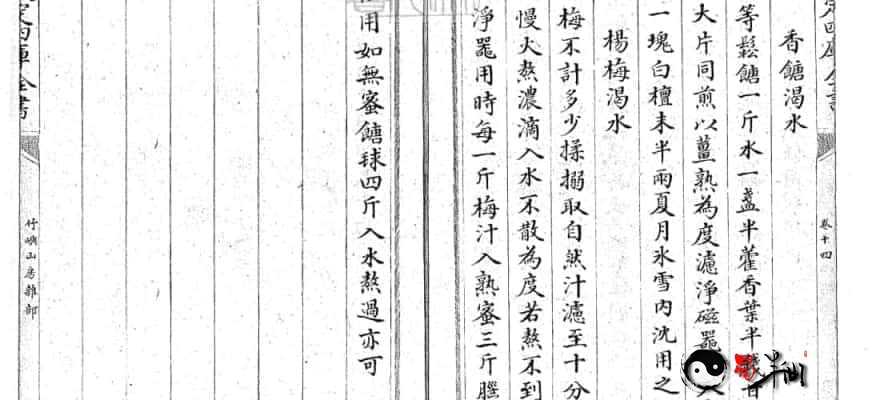 香餹渴水
等鬆餹一斤水一盞半藿香葉半錢甘
大片同煎以薑熟為度濾淨磁器
一塊白檀末半兩夏月氷雪内沈用之
楊梅渴水
梅不計多少揉搦取自然汁濾至十分
慢火熬濃滴入水不散為度若熬不到
淨器用時每一斤梅汁入熟蜜三斤腦
用如無蜜餹球四斤入水熬過亦可
全書
卷十四
竹嶼山房雜部